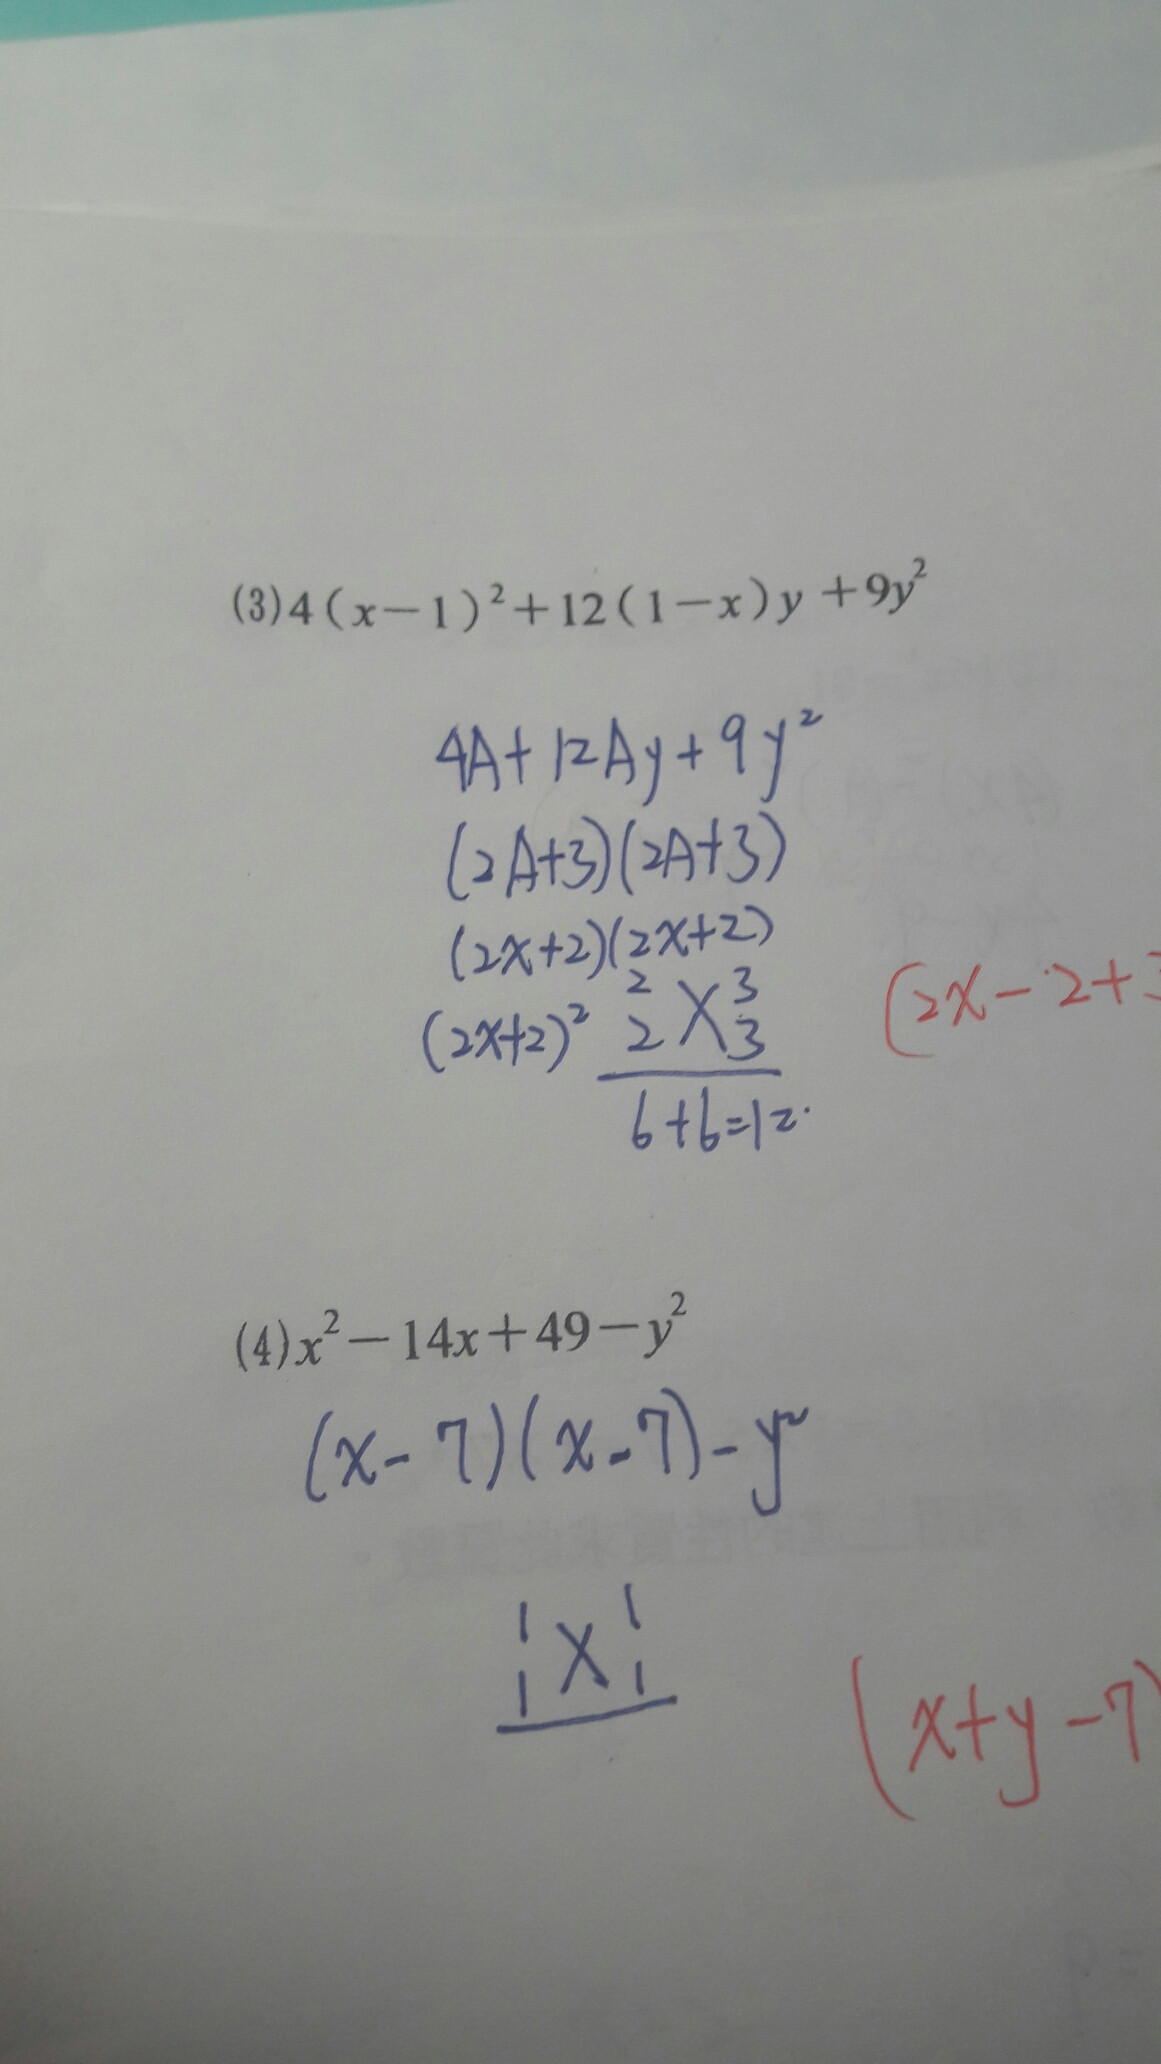 (3)4(x-1)²+12(1-x)y+9y²
4A+12Ay+9y²
(2A+3)(2A+3)
(2x+2)(2x+2)
(2x+2)² 2 X 3
2 3
6+6=12
(2x-2+3
(4)x²-14x+49-y²
(x-7)(x-7)-y²
1 X 1
1 1
(x+y-7)